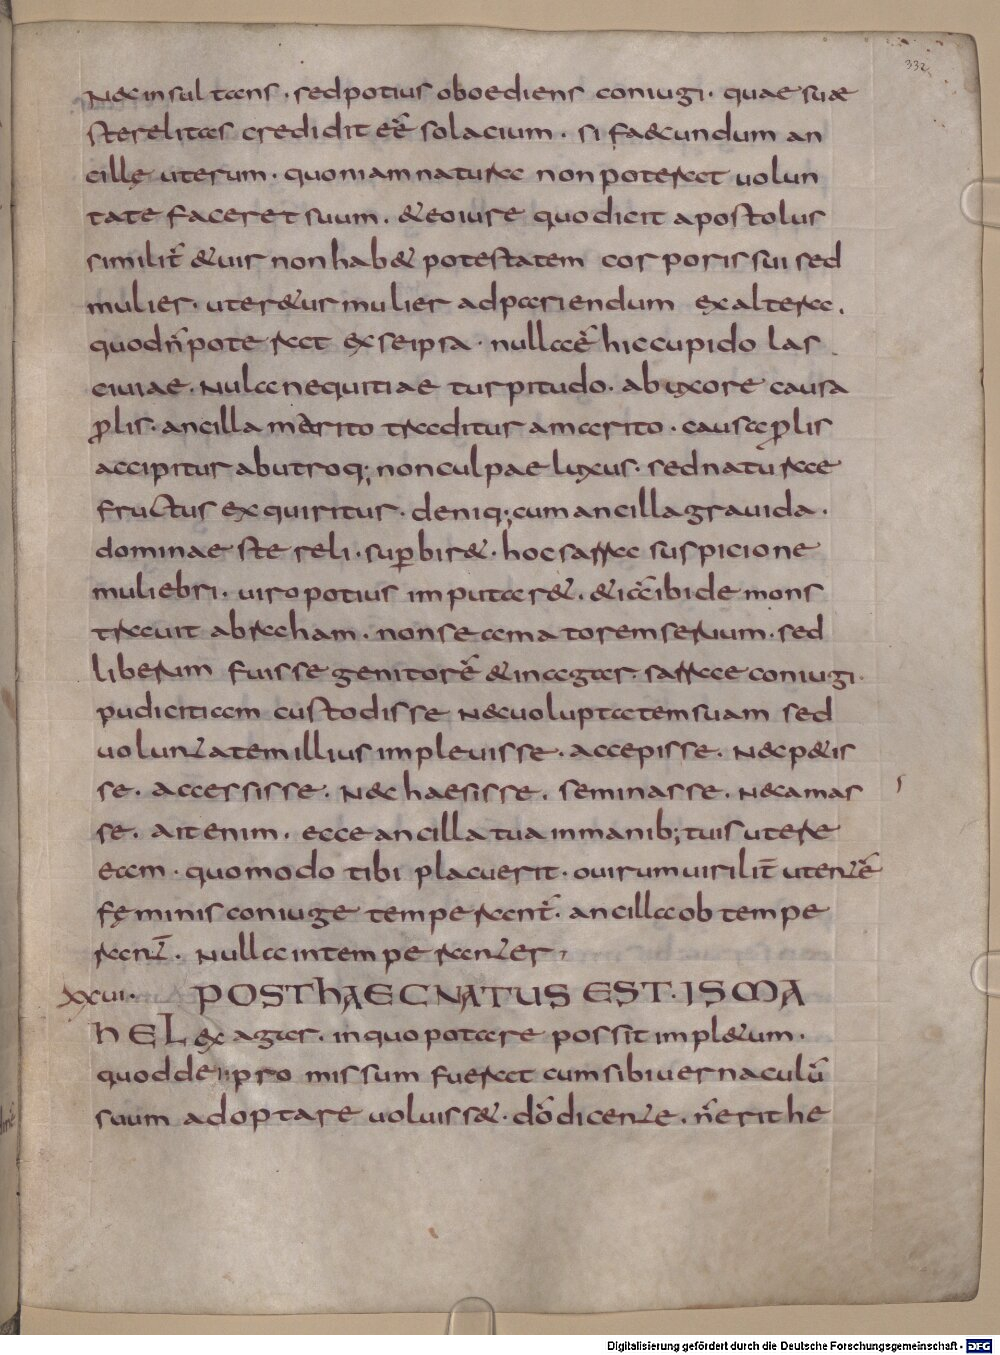 332
nec insultans · sed potius oboediens coniugi · quae suae
sterelitas credidit eē solacium · si faecundum an
cillę uterum · quoniam natura non poterat uolun
tate faceret suum · & eo iure quo dicit apostolus
similit̄ & uir non hab& potestatem corporis sui sed
mulier · uter&ur mulier ad pariendum ex altera ·
quod n̄ poterat ex se ipsa · nulla ē hic cupido las
ciuiae · nulla nequitiae turpitudo · ab uxore causa
ꝓlis · ancilla marito traditur a marito · causa ꝓlis
accipitur ab utroq; non culpae luxus · sed naturae
fructus exquiritur · deniq; cum ancilla grauida ·
dominae stereli · suꝑbir& · hoc sarra suspicione
muliebri · uiro potius imputar& · & iā ibi demons
trauit abraham · non se amatorem seruum · sed
liberum fuisse genitorē & in agar · sarrae coniugi ·
pudicitiam custodisse nec uoluptatem suam sed
uoluntatem illius impleuisse · accepisse · nec p&is
se · accessisse · nec haesisse · seminasse · nec amas
se · ait enim · ecce ancilla tua in manib; tuis utere
eam · quomodo tibi placuerit · o uirum uirilit̄ utentē
fęminis coniuge temperant̄ · ancilla obtempe
rant̄ · nulla intemperanter ,
xxvi · POST HAEC NATUS EST · ISMA
HEL ex agar · in quo potare possit impl&um ·
quod dei promissum fuerat cum sibi uernaculū
suum adoptare uoluiss& · dō dicente · n̄ erit he
Digitalisierung gefördert durch die Deutsche Forschungsgemeinschaft - DFG